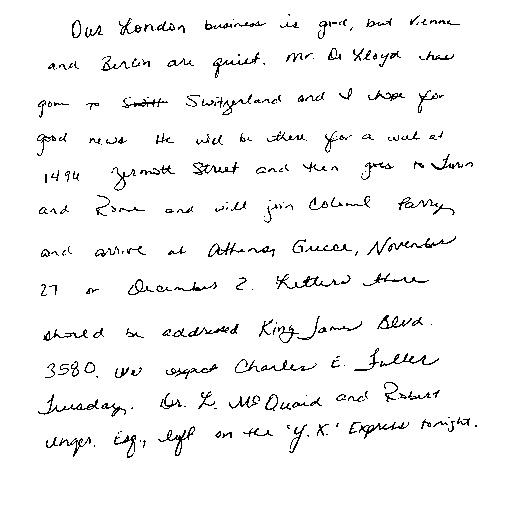 Our London business is good, but Vienna
and Berlin are quiet. Mr. D. Lloyd has
gone to Switzerland and I hope for
good news. He will be there for a week at
1496 Zermott Street and then goes to Turin
and Rome and will join Colonel Parry
and arrive at Athens, Greece, November
27 or December 2. Letters there
should be addressed King James Blvd.
3580. We expect Charles E. Fuller
Tuesday. Dr. L. McQuaid and Robert
Unger, Esq., left on the 'Y.X.' Express tonight.